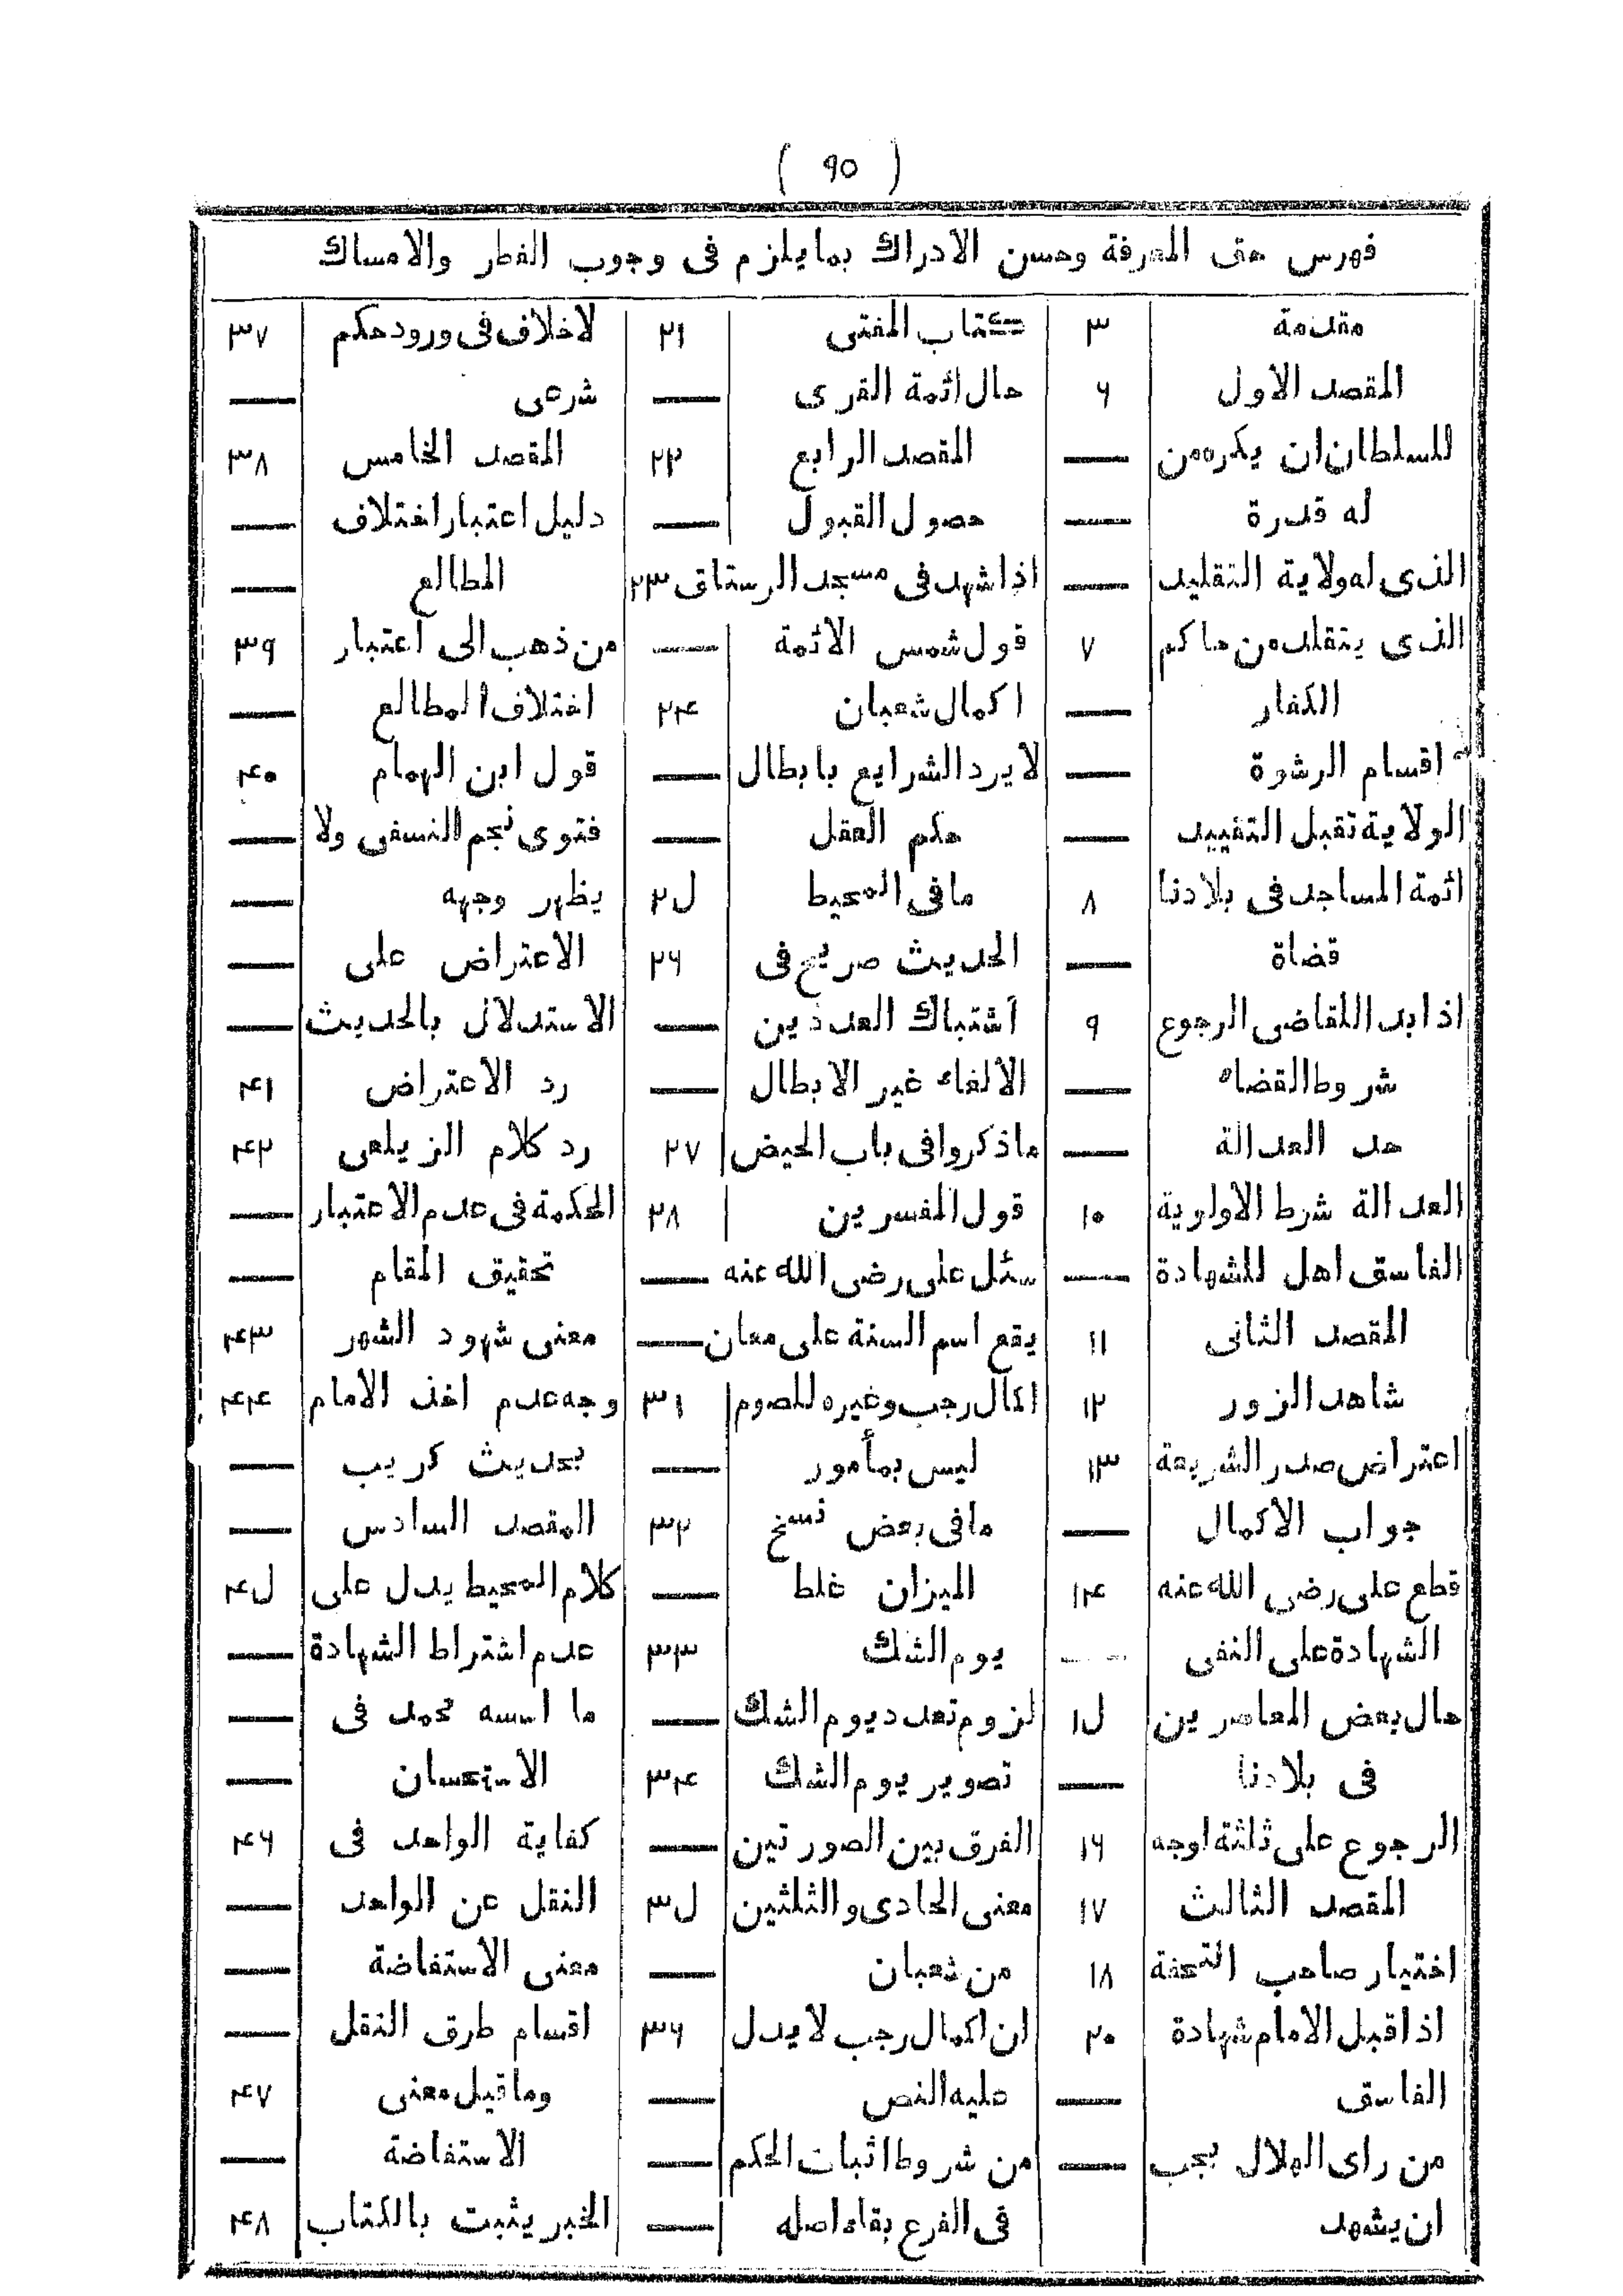 ( ٩٥ )
فهرس حق المعرفة وحسن الادراك بما يلزم فى وجوب الفطر والامساك
مقدمة ٣
المقصد الاول ٦
للسلطان ان يكره من —
له قدرة —
الذى له ولاية التقليد —
الذى يتقلد من حاكم ٧
الكفار —
اقسام الرشوة —
الولاية تقبل التقييد —
ائمة المساجد فى بلادنا ٨
قضاة —
اذا بدا للقاضى الرجوع ٩
شروط القضاء —
حد العدالة —
العدالة شرط الاولوية ١٠
الفاسق اهل للشهادة —
المقصد الثانى ١١
شاهد الزور ١٢
اعتراض صدر الشريعة ١٣
جواب الاكمال —
قطع على رضى الله عنه ١٤
الشهادة على النفى —
حال بعض المعاصرين ١٥
فى بلادنا —
الرجوع على ثلثة اوجه ١٦
المقصد الثالث ١٧
اختيار صاحب التحفة ١٨
اذا قبل الامام شهادة ٢٠
الفاسق —
من راى الهلال يجب —
ان يشهد
كتاب المفتى ٢١
حال ائمة القرى —
المقصد الرابع ٢٢
حصول القبول —
اذا شهد فى مسجد الرستاق ٢٣
قول شمس الائمة —
اكمال شعبان ٢٤
لا يرد الشرايع بابطال —
حكم العقل —
ما فى المحيط ٢٥
الحديث صريح فى ٢٦
اشتباك العددين —
الالغاء غير الابطال —
ما ذكروا فى باب الحيض ٢٧
قول المفسرين ٢٨
سئل على رضى الله عنه —
يقع اسم السنة على معان —
اكمال رجب وغيره للصوم ٣١
ليس بمأمور —
ما فى بعض نسخ ٣٢
الميزان غلط —
يوم الشك ٣٣
لزوم تعدد يوم الشك —
تصوير يوم الشك ٣٤
الفرق بين الصورتين —
معنى الحادى والثلثين ٣٥
من شعبان —
ان اكمال رجب لا يدل ٣٦
عليه النص —
من شروط اثبات الحكم —
فى الفرع بقاء اصله —
لا خلاف فى ورود حكم ٣٧
شرعى —
المقصد الخامس ٣٨
دليل اعتبار اختلاف —
المطالع —
من ذهب الى اعتبار ٣٩
اختلاف المطالع —
قول ابن الهمام ٤٠
فتوى نجم النسفى ولا —
يظهر وجهه —
الاعتراض على —
الاستدلال بالحديث —
رد الاعتراض ٤١
رد كلام الزيلعى ٤٢
الحكمة فى عدم الاعتبار —
تحقيق المقام —
معنى شهود الشهر ٤٣
وجه عدم اخذ الامام ٤٤
بحديث كريب —
المقصد السادس —
كلام المحيط يدل على ٤٥
عدم اشتراط الشهادة —
ما اسسه محمد فى —
الاستحسان —
كفاية الواحد فى ٤٦
النقل عن الواحد —
معنى الاستفاضة —
اقسام طرق النقل —
وما قيل معنى ٤٧
الاستفاضة —
الخبر يثبت بالكتاب ٤٨